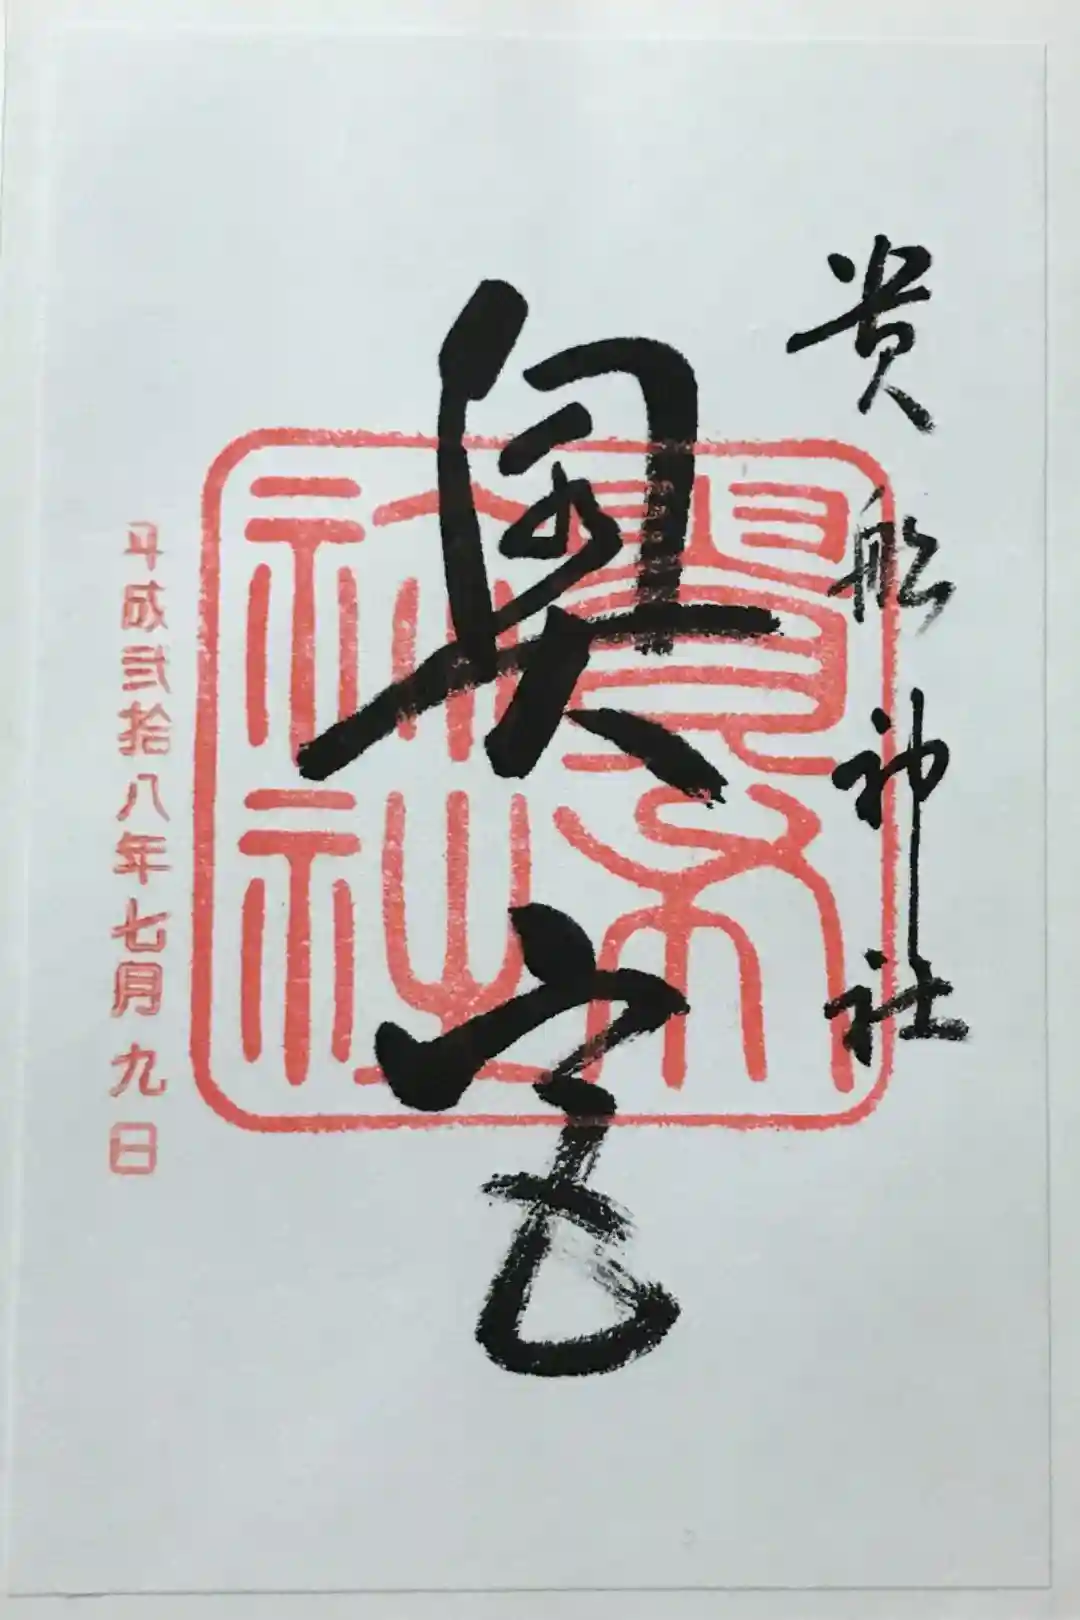 貴船神社
奥宮
貴布
祢社
平成弐拾八年七月九日